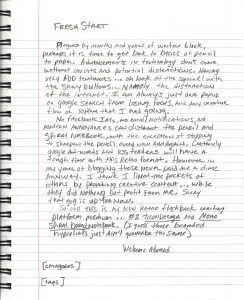 FRESH START
Plagued by months and years of writer block,
perhaps it is time to get back to basics of pencil
to paper. Advancements in technology don't come
without costs and potential distractions. Having
very ADD tendencies... oh look at the squirrel with
the shiny buttons... Namely the distraction
of the internet. I am always just one popup
or google search from losing focus, and any creative
flow or rhythm that I had going.
No facebook IMs, no email notifications, no
modern annoyances can distract the pencil and
spiral notebook, with the exception of stopping
to sharpen the pencil every now and again. Certainly
google ad-words and RSS feeders will have a
tough time with this retro format. However in
my years of blogging those never paid me a dime
anyway. I think I lined the pockets of
others by providing creative content... while
they did nothing but profit from me. Sorry
that gig is up now.
So call this is my new retro flashback writing
platform medium... #2 Ticonderoga and Mead
Spiral bound notebook. (I guess those branded
hyperlinks just ain't gonna be the same)
Welcome Aboard
[categories]
[tags]